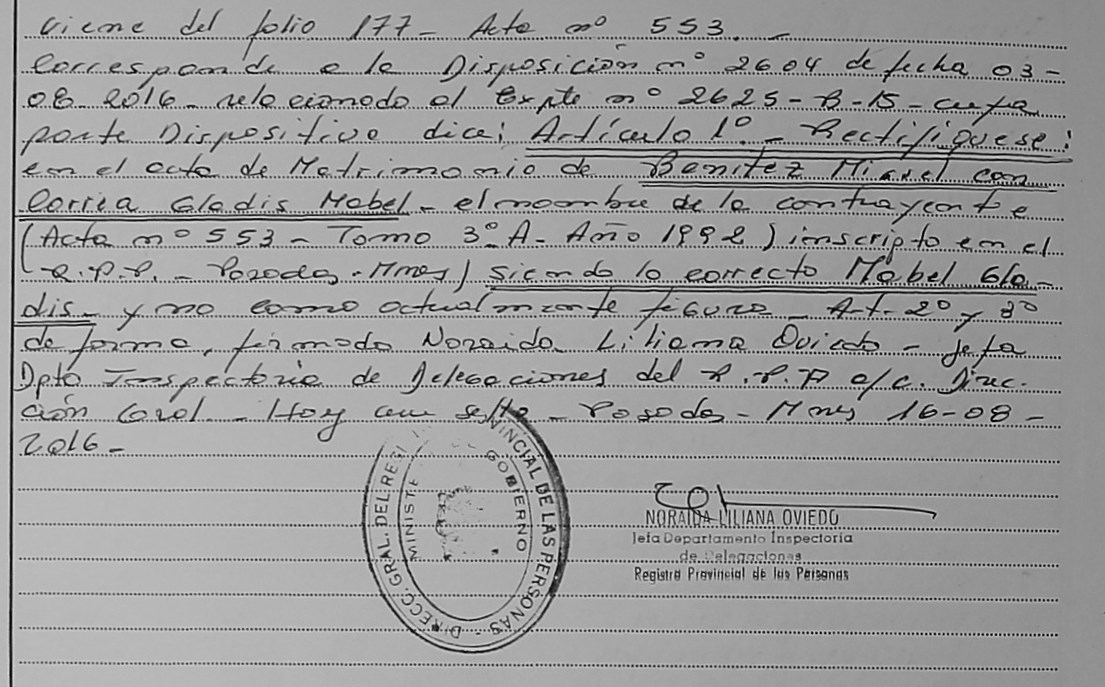 viene del folio 177- Acta nº 553.-
Corresponde a la Disposición nº 2604 de fecha 03-
08-2016- relacionado al Expte nº 2625-B-15- cuya
parte Dispositivo dice; Artículo 1º- Rectifíquese:
en el acta de Matrimonio de Benitez Miguel con
Correa Gladis Mabel- el nombre de la contrayente
(Acta nº 553- Tomo 3º A- Año 1992) inscripto en el
R.P.P.- Posadas-Mnes) siendo lo correcto Mabel Gla-
dis- y no como actualmente figura- Art- 2º y 3º
de forma, firmado Noraida Liliana Oviedo- Jefa
Dpto Inspectoria de Delegaciones del R.P.P a/c. Direc-
ción Gral- Hoy
Posadas- Mnes 16-08-
2016-
DIRECC. GRAL. DEL REGI PROVINCIAL DE LAS PERSONAS
MINISTE GOBIERNO
NORAIDA LILIANA OVIEDO
Jefa Departamento Inspectoria
de Delegaciones
Registro Provincial de las Personas